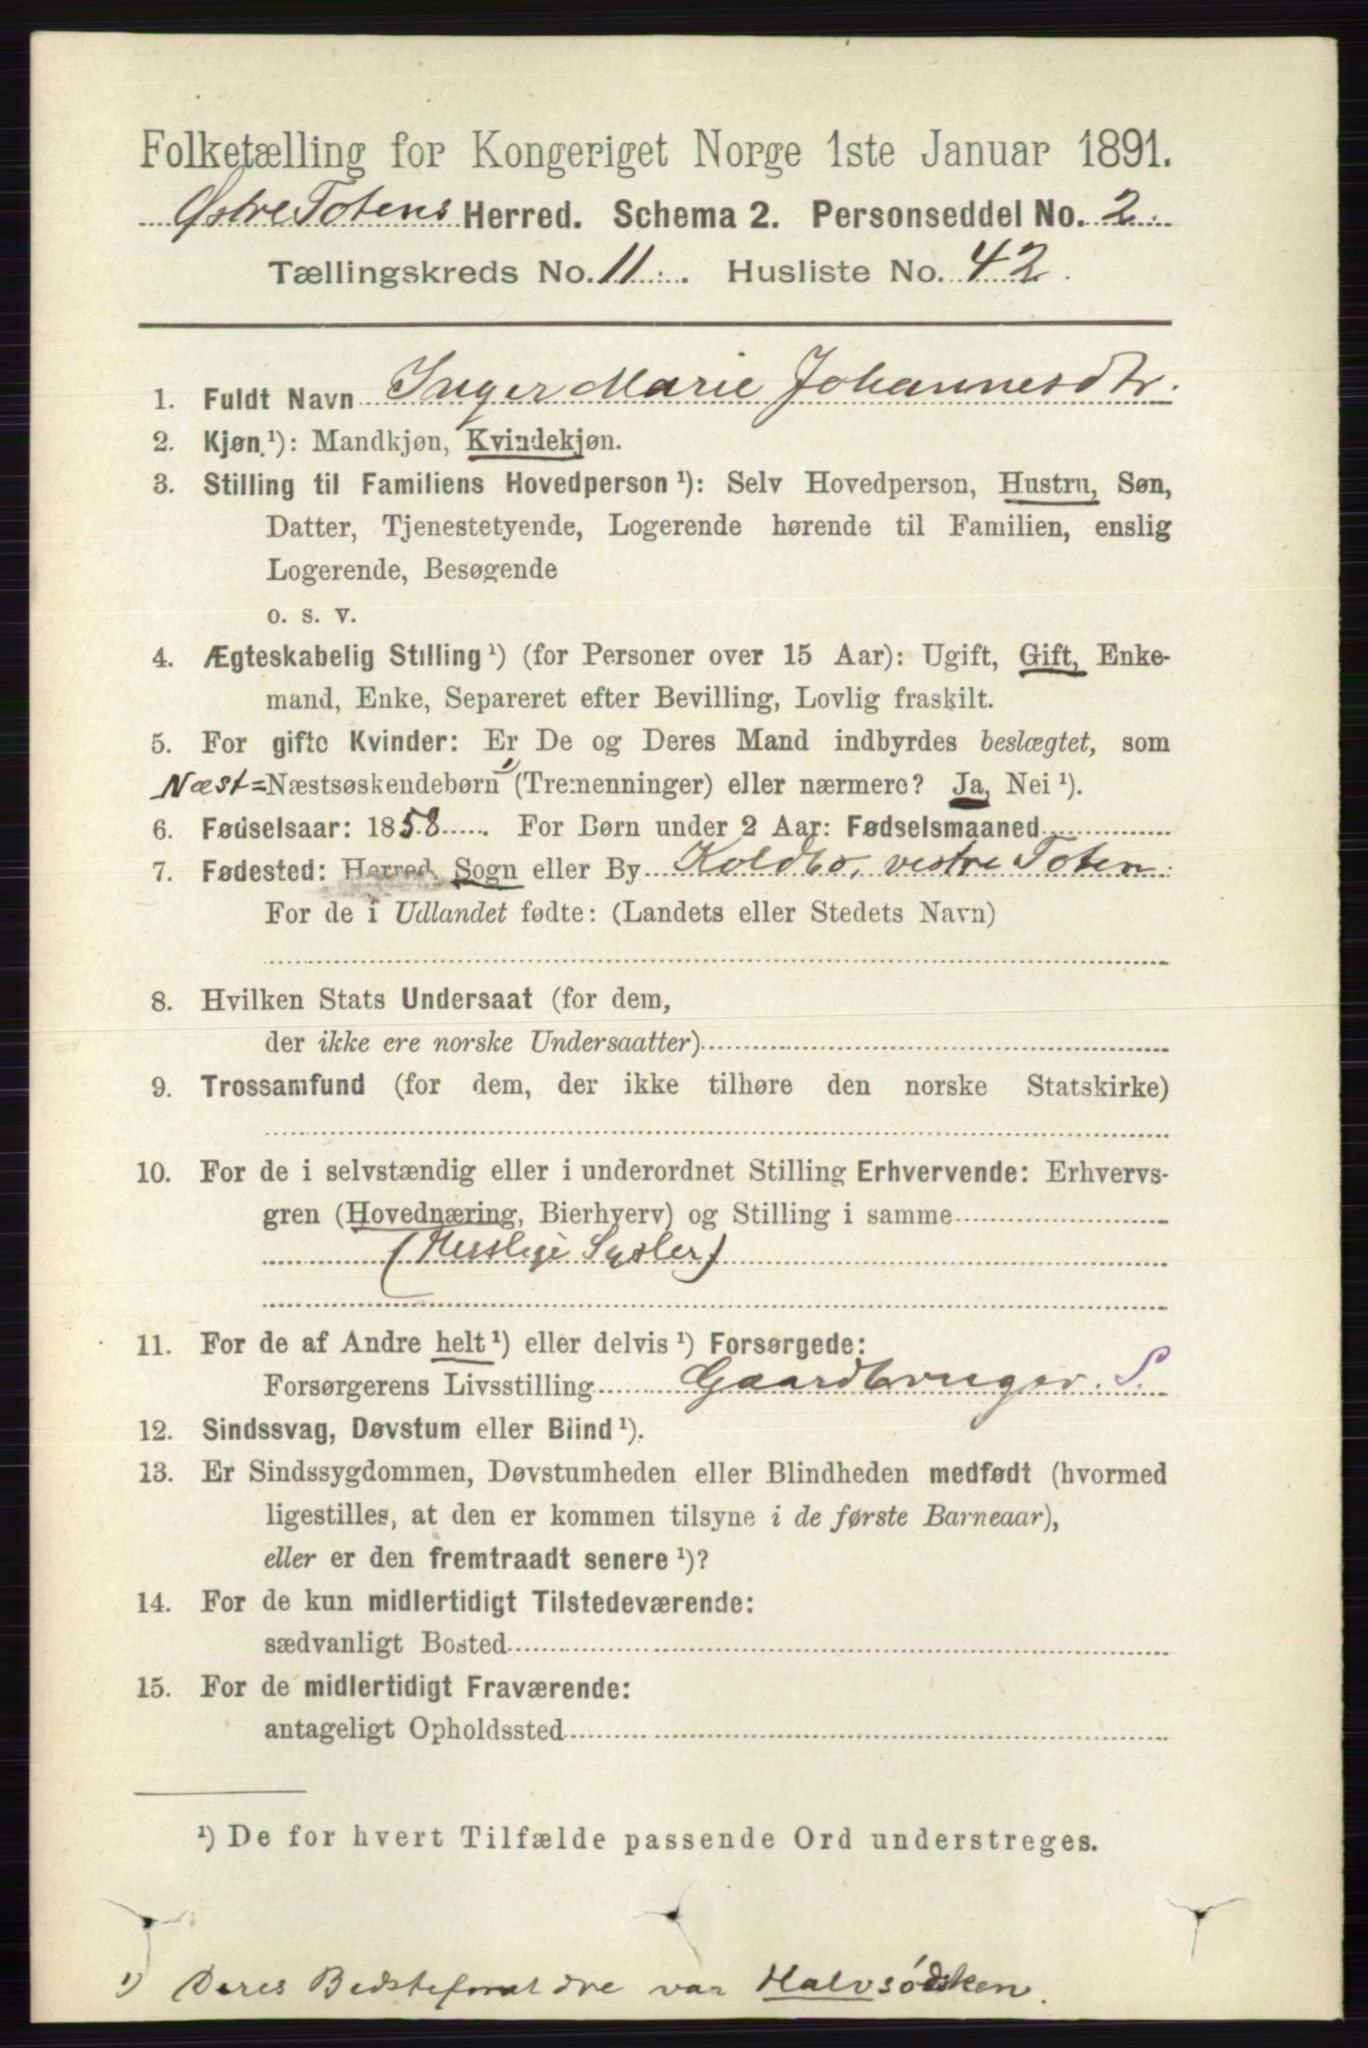 Folketælling for Kongeriget Norge 1ste Januar 1891.
Østre Totens Herred. Schema 2. Personseddel No. 2.
Tællingskreds No. 11. Husliste No. 42.
1. Fuldt Navn Inger Marie Johannesdtr.
2. Kjøn ¹): Mandkjøn, Kvindekjøn.
3. Stilling til Familiens Hovedperson ¹): Selv Hovedperson, Hustru, Søn,
Datter, Tjenestetyende, Logerende hørende til Familien, enslig
Logerende, Besøgende
o. s. v.
4. Ægteskabelig Stilling ¹) (for Personer over 15 Aar): Ugift, Gift, Enke-
mand, Enke, Separeret efter Bevilling, Lovlig fraskilt.
5. For gifte Kvinder: Er De og Deres Mand indbyrdes beslægtet, som
Næst= Næstsøskendebørn ¹) (Tremenninger) eller nærmere? Ja, Nei ¹).
6. Fødselsaar: 1858. For Børn under 2 Aar: Fødselsmaaned
7. Fødested: Herred, Sogn eller By Koldbo, vestre Toten.
For de i Udlandet fødte: (Landets eller Stedets Navn)
8. Hvilken Stats Undersaat (for dem,
der ikke ere norske Undersaatter)
9. Trossamfund (for dem, der ikke tilhøre den norske Statskirke)
10. For de i selvstændig eller i underordnet Stilling Erhvervende: Erhvervs-
gren (Hovednæring, Bierhverv) og Stilling i samme
(Huslige Sysler)
11. For de af Andre helt ¹) eller delvis ¹) Forsørgede:
Forsørgerens Livsstilling Gaardbruger. S.
12. Sindssvag, Døvstum eller Blind ¹).
13. Er Sindssygdommen, Døvstumheden eller Blindheden medfødt (hvormed
ligestilles, at den er kommen tilsyne i de første Barneaar),
eller er den fremtraadt senere ¹)?
14. For de kun midlertidigt Tilstedeværende:
sædvanligt Bosted
15. For de midlertidigt Fraværende:
antageligt Opholdssted
¹) De for hvert Tilfælde passende Ord understreges.
¹) Deres Bedsteforældre var Halvsødsken.